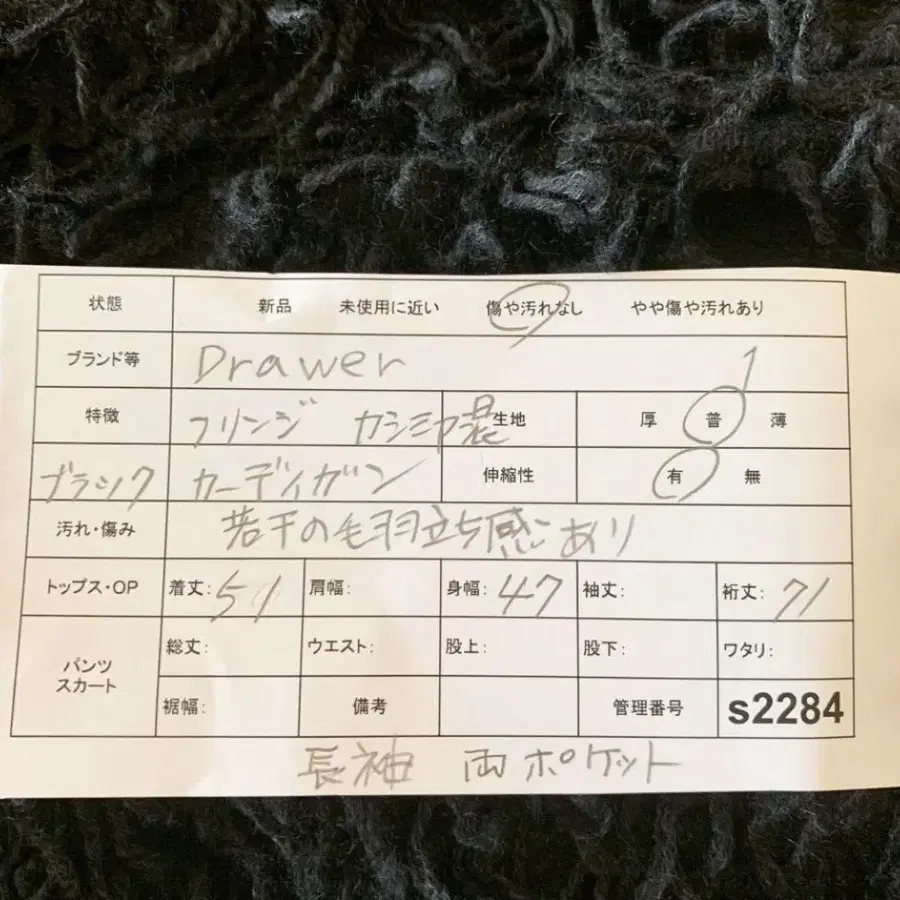 状態 新品 未使用に近い 傷や汚れなし やや傷や汚れあり
ブランド等 Drawer 1
特徴 フリンジ カシミヤ混 生地 厚 普 薄
ブラック カーディガン 伸縮性 有 無
汚れ・傷み 若干の毛羽立ち感あり
トップス・OP 着丈:51 肩幅: 身幅:47 袖丈: 裄丈:71
パンツ スカート 総丈: ウエスト: 股上: 股下: ワタリ:
裾幅: 備考 管理番号 s2284
長袖 両ポケット